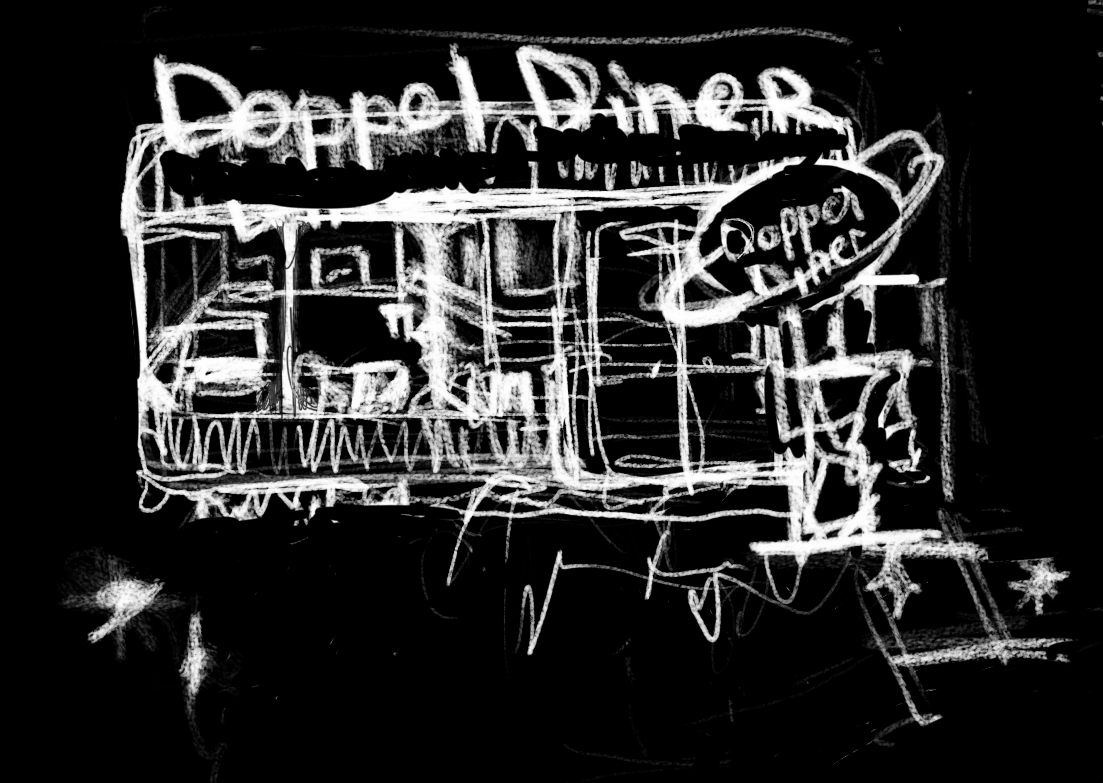 Doppel Diner
Doppel
Diner